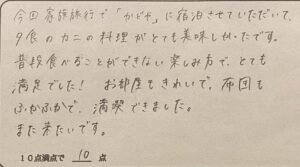 今回 家族旅行で「かどや」に宿泊させていただいて、
夕食のカニの料理がとても美味しかったです。
普段食べることができない楽しみ方で、とても
満足でした! お部屋もきれいで、布団も
ふかふかで、満喫できました。
また来たいです。
10点満点で 10 点